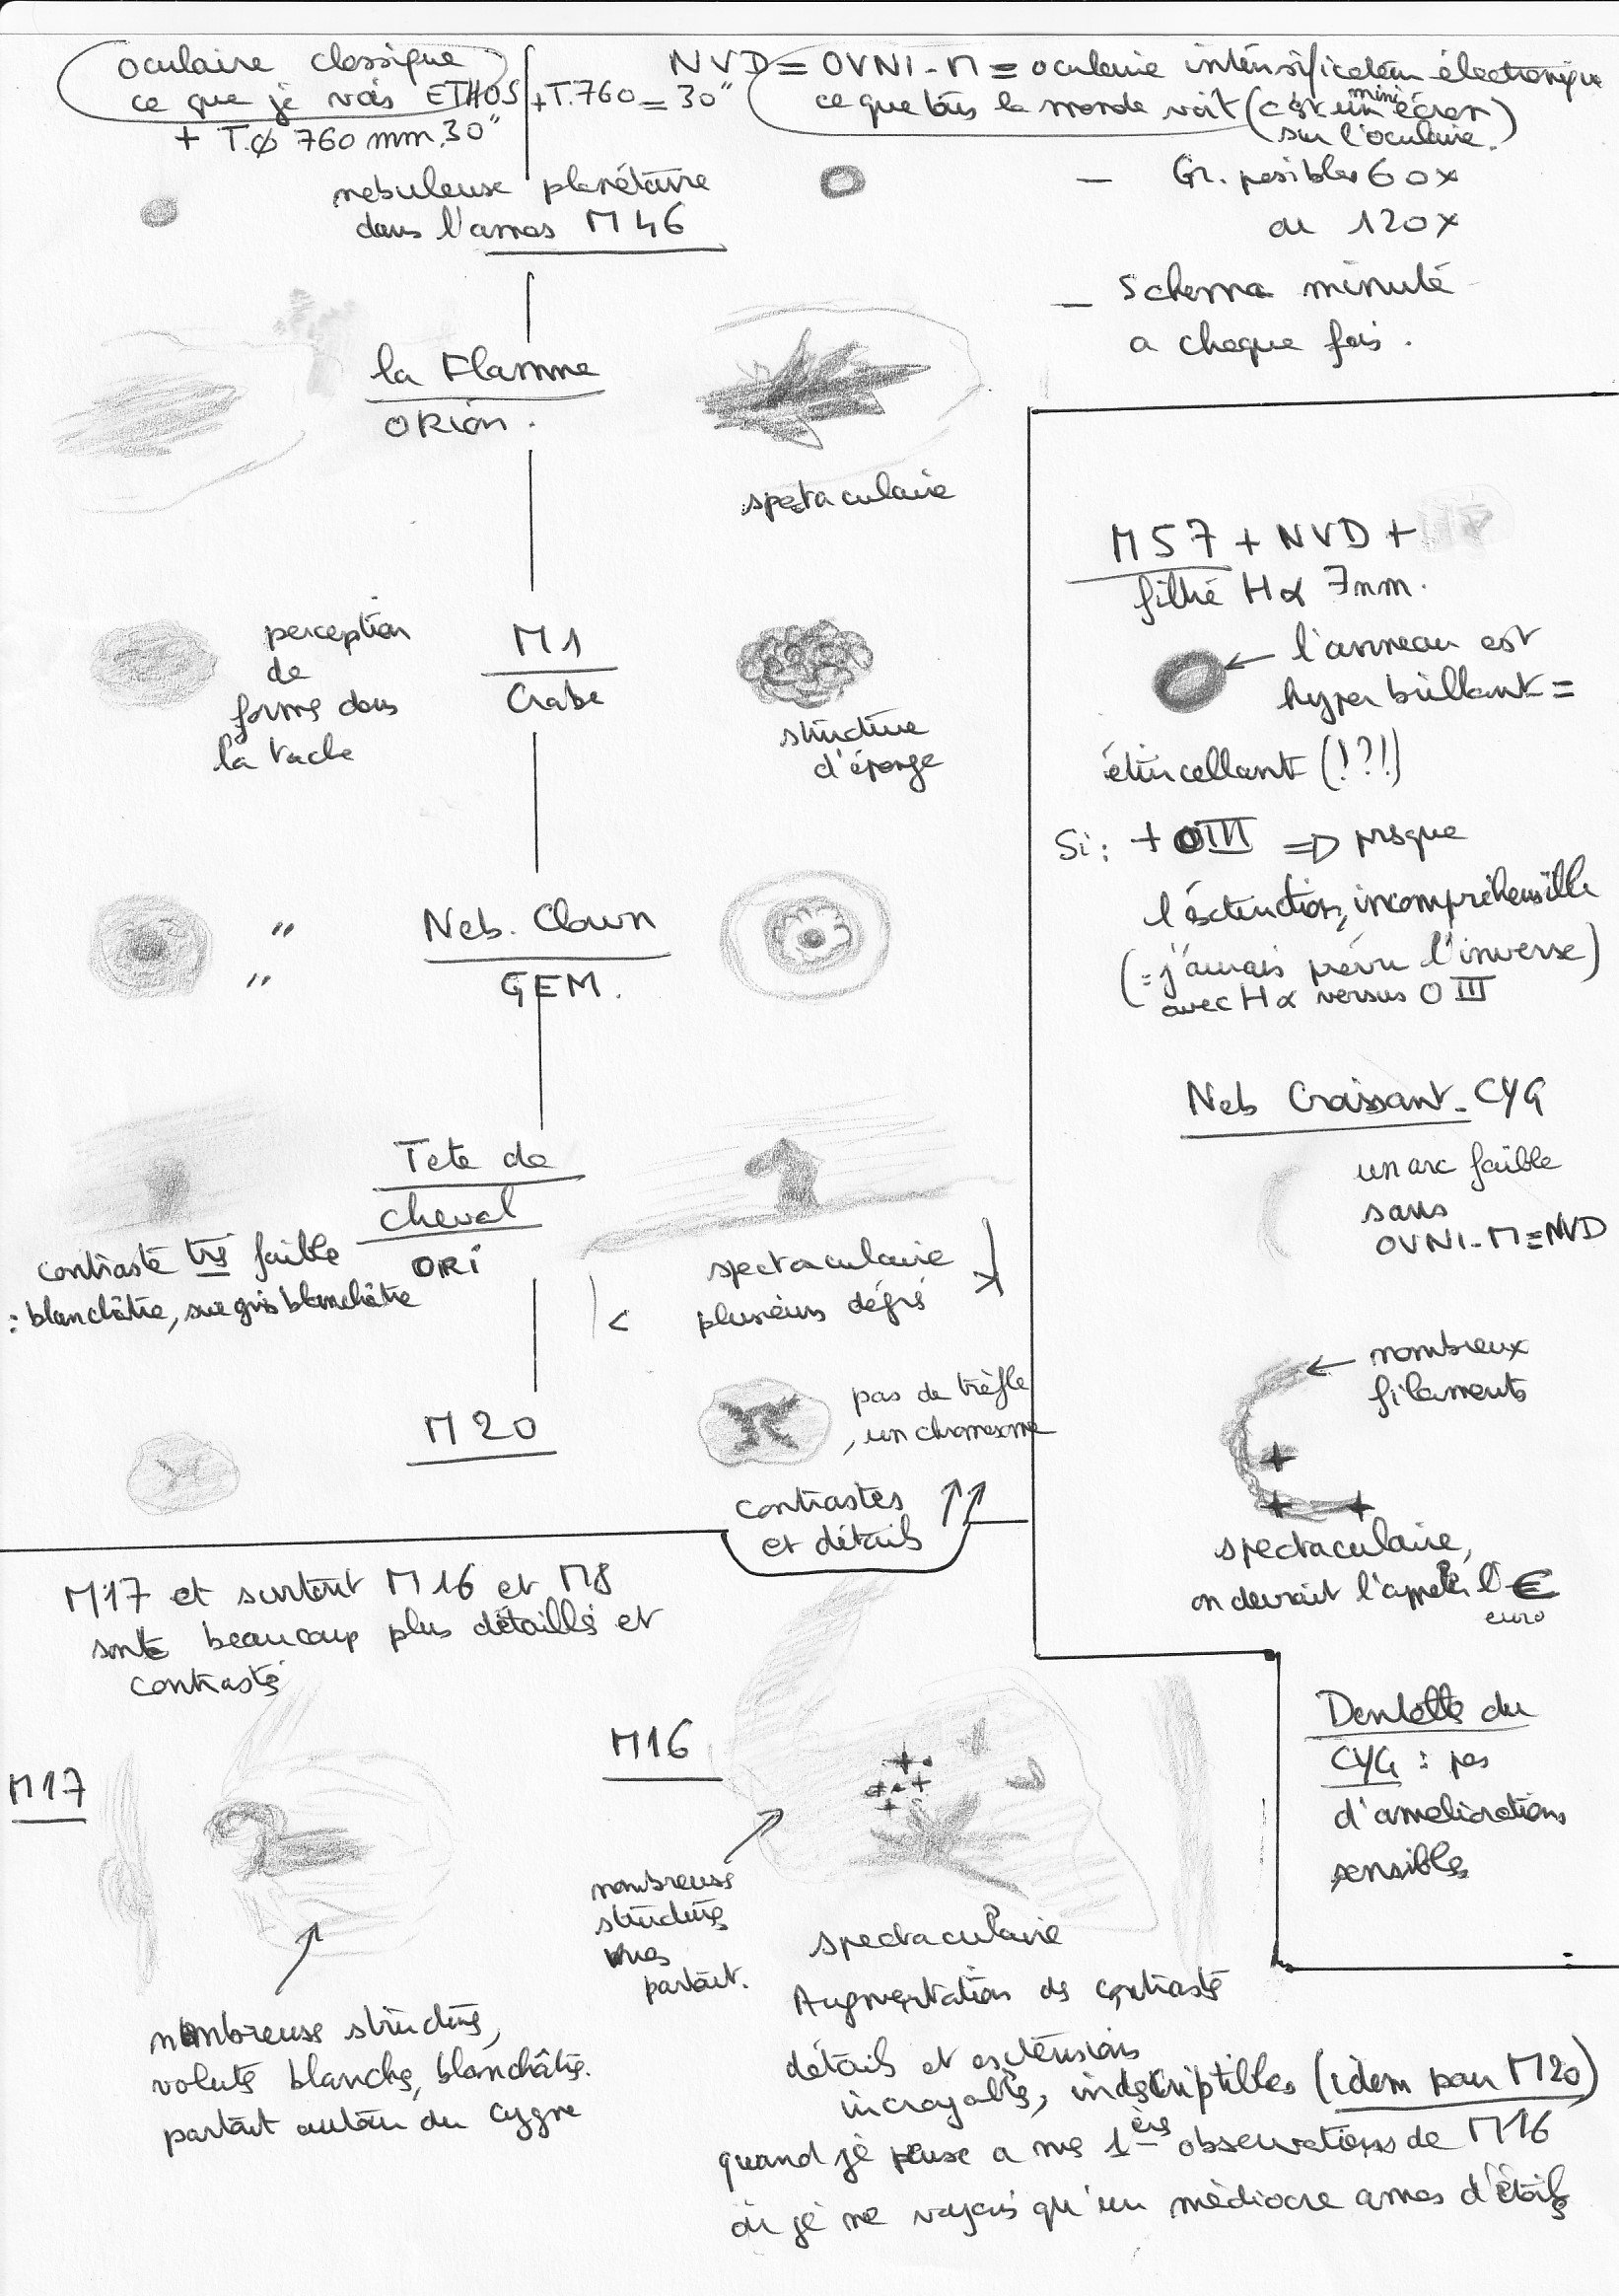 oculaire classique
ce que je vois ETHOS
+ T.Ø 760 mm.30"
+T.760=30"
NVD = OVNI-M = oculaire intensificateur électronique
ce que tous le monde voit (c'est un mini écran
sur l'oculaire.)
nebuleuse planétaire
dans l'amas M46
— Gr. posibles 60x
ou 120x
— Schema minuté
a chaque fois.
la Flamme
ORion.
spectaculaire
perception
de
forme dans
la tache
M1
Crabe
structure
d'éponge
" "
Neb. Clown
GEM.
Tete de
cheval
ORi
contraste très faible
: blanchâtre, sur gris blanchâtre
spectaculaire
< plusieurs dégrés
M20
pas de trèfle
, un chromosome
contrastes ↑↑
et détails
M57 + NVD +
filtre Hα 7nm.
← l'anneau est
hyper brillant =
étincellant (!?!)
Si: + OIII => presque
l'éxtinction, incompréhensible
(= j'aurais prévu l'inverse)
avec Hα versus OIII
Neb Croissant - CYG
un arc faible
sans
OVNI-M=NVD
← nombreux
filaments
spectaculaire,
on devrait l'appeler l'€
euro
Dentelle du
CYG : pas
d'ameliorations
sensibles
M17 et surtout M16 et M8
sont beaucoup plus détaillés et
contrasté
M17
nombreuse structure,
volute blanche, blanchâtre.
partout autour du cygne
M16
nombreuse
structure
vues
partout.
spectaculaire
Augmentation de contraste
détails et extensions
incroyables, indécriptibles (idem pour M20)
quand je pense a mes 1ères observations de M16
où je ne voyais qu'un médiocre amas d'étoiles